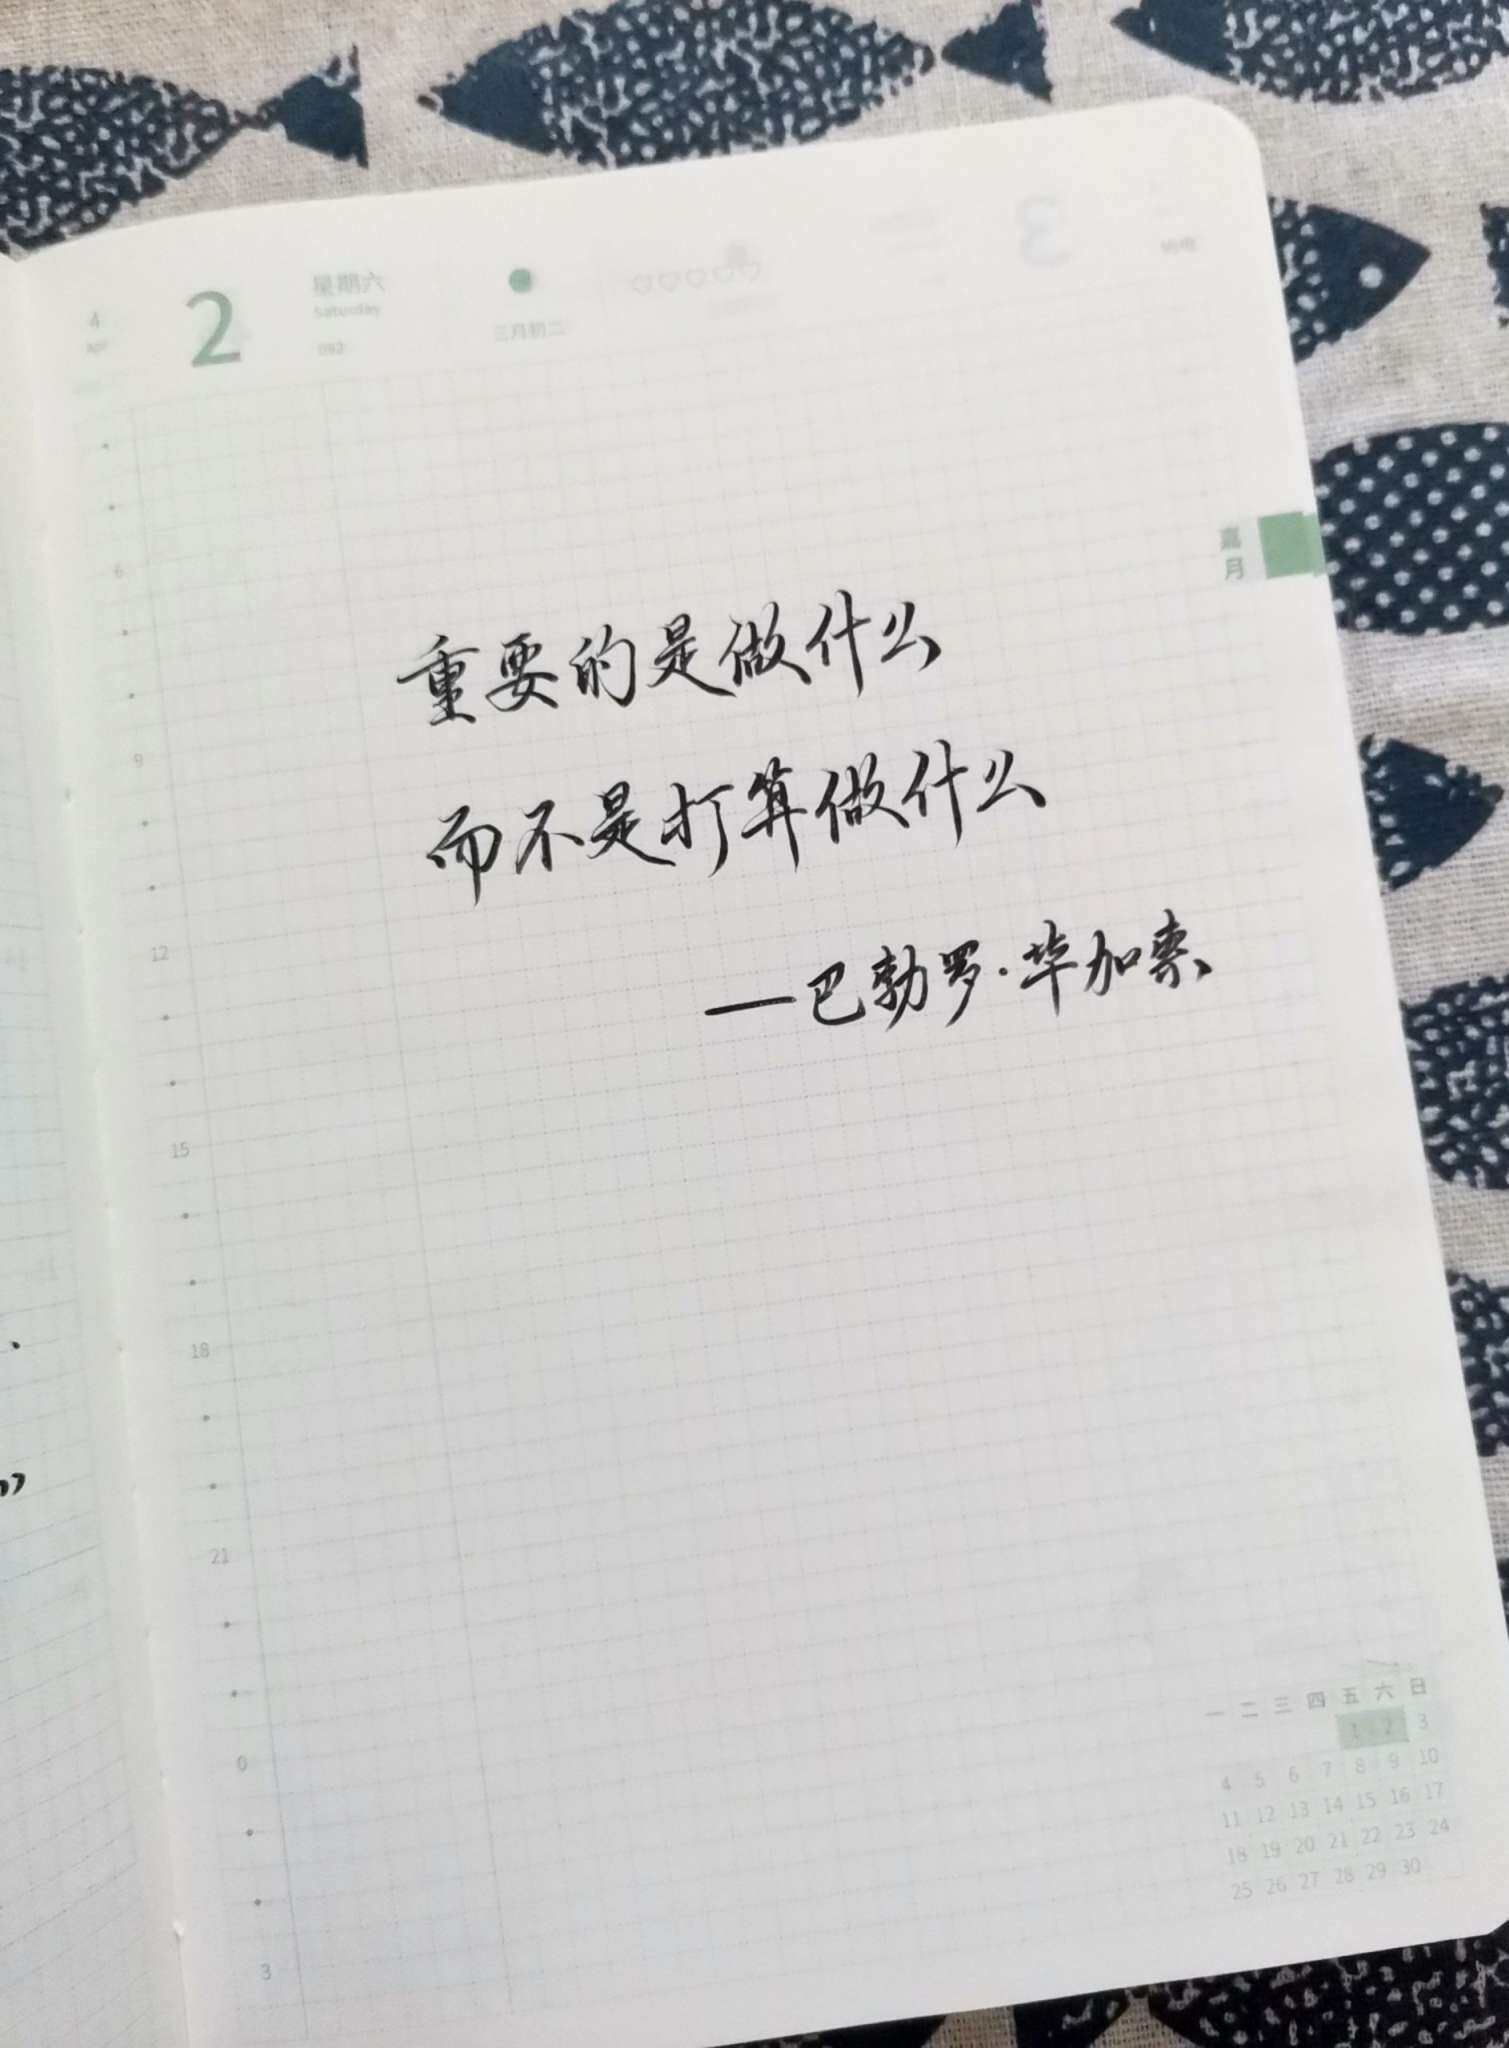 4
2
星期六
Saturday
092
三月初二
3
嘉月
重要的是做什么
而不是打算做什么
——巴勃罗·毕加索
6
9
12
15
18
21
0
3
一 二 三 四 五 六 日
1 2 3
4 5 6 7 8 9 10
11 12 13 14 15 16 17
18 19 20 21 22 23 24
25 26 27 28 29 30